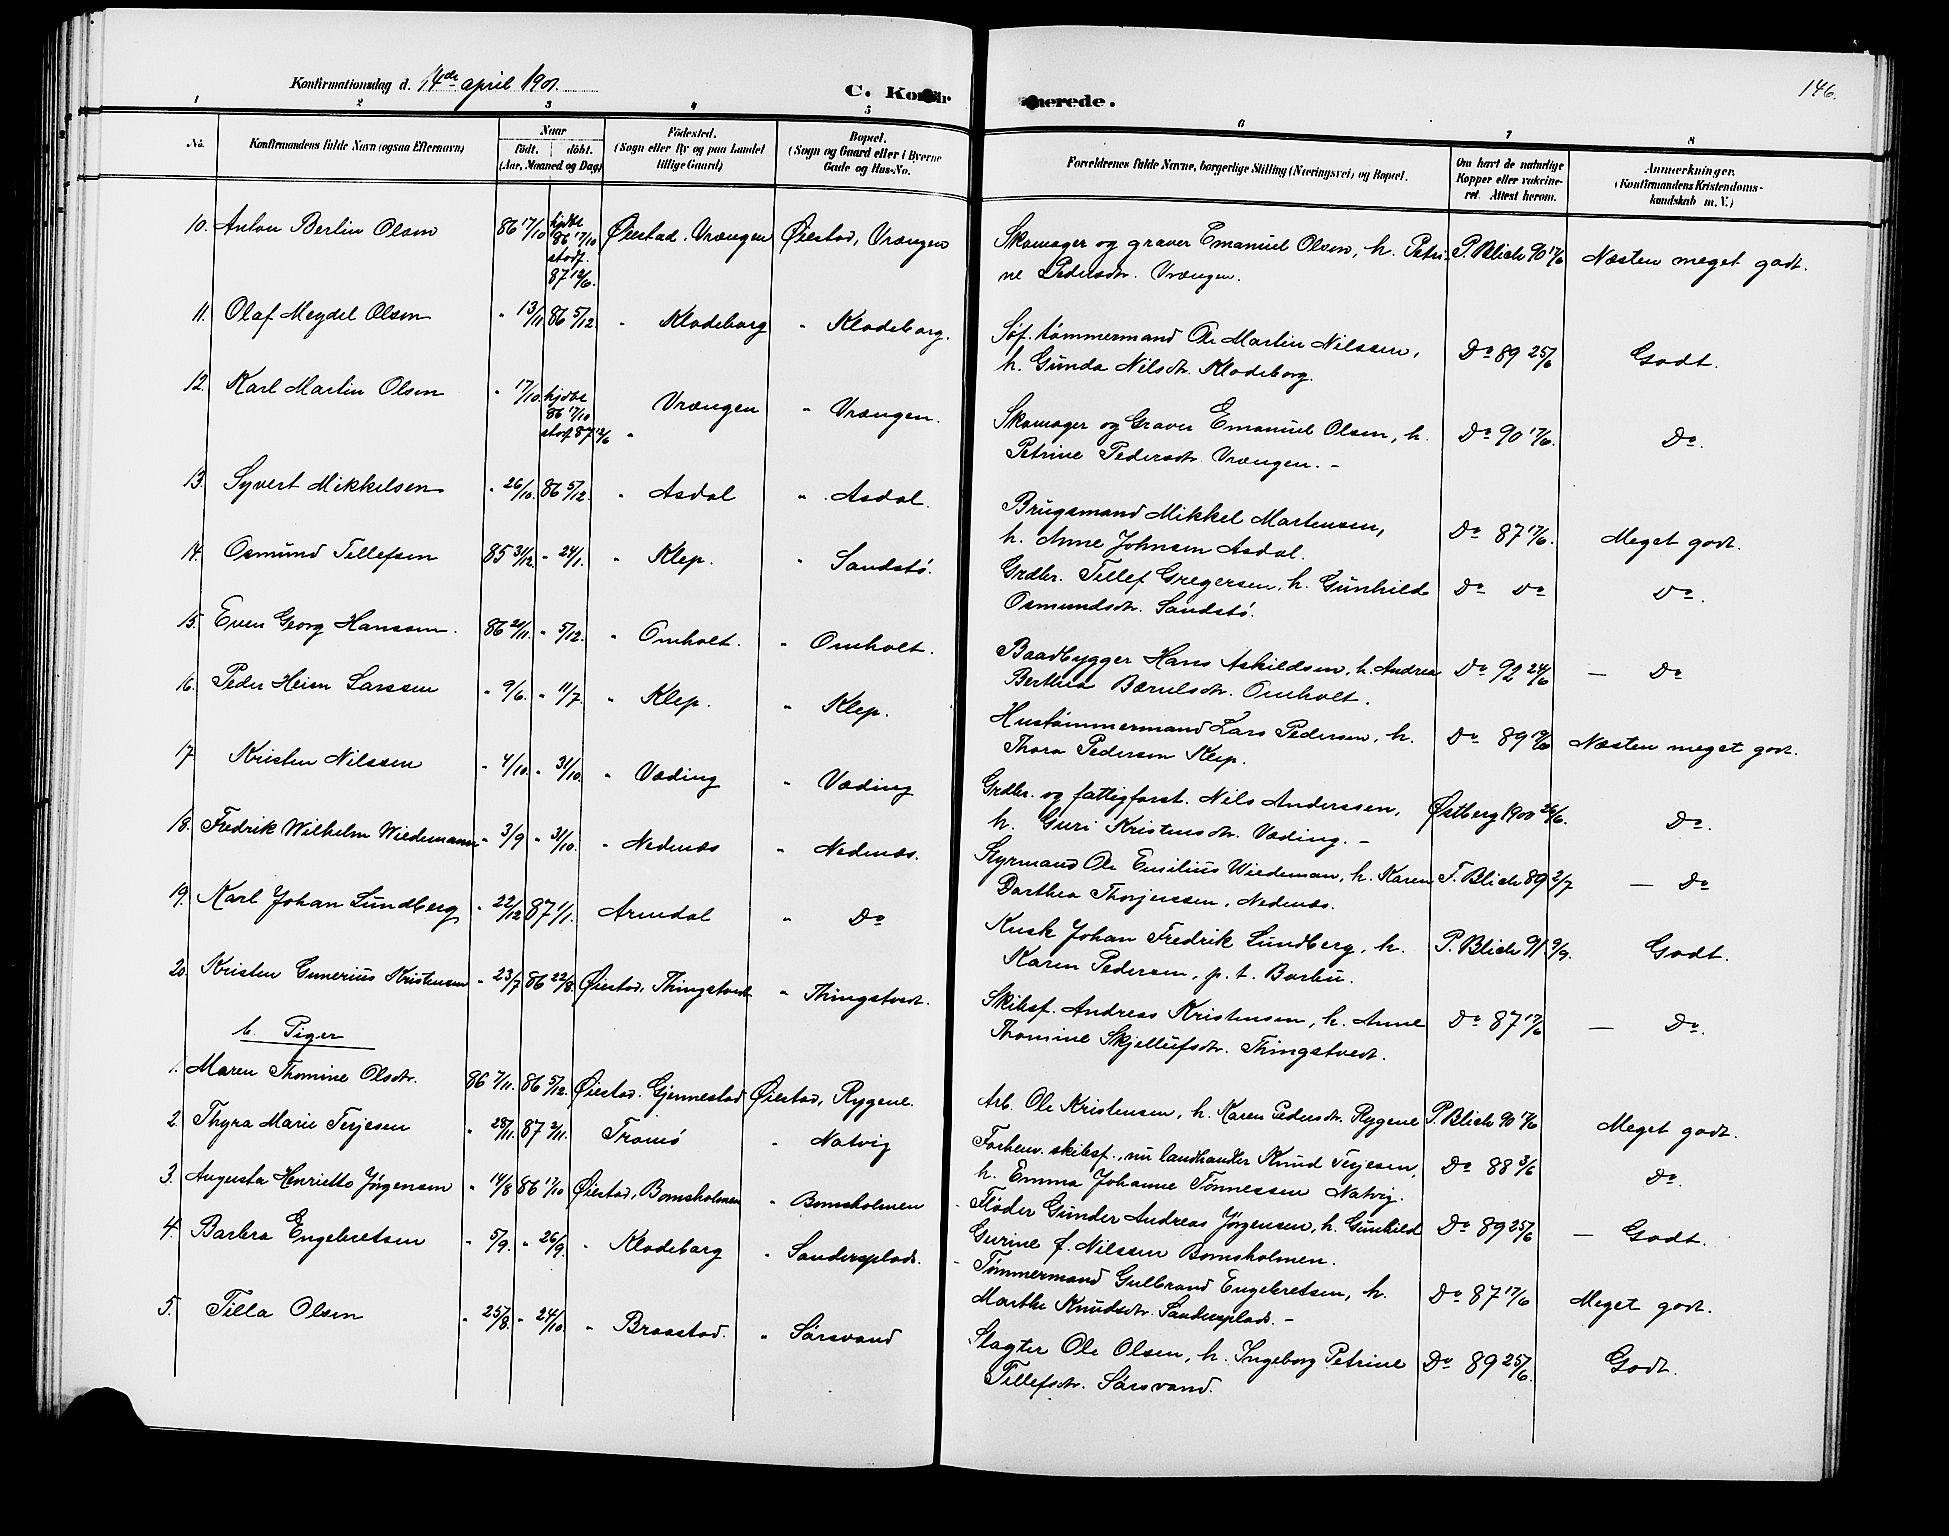 Konfirmationsdag d. 14de april 1901.
C. Konfirmerede.
146.
1 2 3 4 5 6 7 8
No. Konfirmandens fulde Navn (ogsaa Efternavn)
Naar
født. døbt.
(Aar, Maaned og Dag)
Fødested.
(Sogn eller By og paa Landet
tillige Gaard)
Bopæl.
(Sogn og Gaard eller i Byerne
Gade og Hus-No.
Forældrenes fulde Navne, borgerlige Stilling (Næringsvei) og Bopæl.
Om havt de naturlige
Kopper eller vakcine-
ret. Attest herom.
Anmærkninger.
(Konfirmandens Kristendoms-
kundskab m. V.)
10. Anton Berlin Olsen 86 17/10 hjdbt 86 17/10 stadf. 87 12/6. Øiestad, Vrængen Øiestad, Vrængen Skomager og graver Emanuel Olsen, h. Petri-
ne Pedersdtr. Vrængen. P. Blich 90 17/6 Næsten meget godt.
11. Olaf Meydel Olsen " 13/11 86 5/12. " Klodeborg " Klodeborg. Søf. tømmermand Ole Martin Nilssen,
h. Gunda Nilsdtr. Klodeborg. Do 89 25/6 Godt.
12. Karl Martin Olsen " 17/10. hjdbt 86 17/10 stadf. 87 12/6 " Vrængen " Vrængen. Skomager og Graver Emanuel Olsen, h.
Petrine Pedersdtr. Vrængen. - Do 90 17/6. Do.
13. Syvert Mikkelsen " 26/10. 86 5/12. " Asdal " Asdal. Brugsmand Mikkel Martensen,
h. Anne Johnsen Asdal. Do 87 17/6. Meget godt.
14. Osmund Tellefsen 85 31/12 " 24/1. " Klep. " Sandstø. Grdbr. Tellef Gregersen, h. Gunhild
Osmundsdtr. Sandstø. Do Do Do.
15. Even Georg Hanssen. 86 21/11. " 5/12. " Omholt. " Omholt. Baadbygger Hans Askildsen, h. Andrea
Berthea Bærulsdtr. Omholt. Do 92 24/6 — Do
16. Peder Heim Larssen " 9/6. " 11/7 " Klep. " Klep. Hustømmermand Lars Pedersen, h.
Thora Pedersen Klep. Do 89 Næsten meget godt.
17 Kristen Nilssen " 4/10. " 31/10. " Væding " Væding Grdbr. og fattigforst. Nils Anderssen,
h. Guri Kristensdtr. Væding. - Østberg 1900 26/6. Do.
18. Fredrik Wilhelm Wiedemann " 3/9 " 31/10. " Nedenæs " Nedenæs. Styrmand Ole Emilius Wiedeman, h. Karen
Dorthea Thorjussen, Nedenæs. T. Blich 89 2/7 — Do
19. Karl Johan Lundberg " 22/12 87 1/1. Arendal " Do Kusk Johan Fredrik Lundberg, h.
Karen Pedersen, p. t. Barbu. P. Blich 91. 9/9. Godt.
20. Kristen Gunerius Kristensen " 23/7 86 22/8. Øiestad, Thingstvedt " Thingstvedt. Skibsf. Andreas Kristensen, h. Anne
Thomine Skjellufsdtr. Thingstvedt. Do 87 17/6 — Do.
b. Piger
1. Maren Thomine Olsdtr. 86 7/11. 86 5/12. Øiestad. Gjennestad Øiestad, Rygene. Arb. Ole Kristensen, h. Karen Pedersdtr. Rygene P. Blich 90 17/6 Meget godt.
2. Thyra Marie Terjesen " 28/11. 87 2/11. Tromø " Natvig Forhenv. skibsf., nu landhandler Knud Terjesen,
h. Emma Johanne Tønnessen Natvig. Do 88 3/6 Do.
3. Augusta Henriette Jørgensen " 14/8 86 17/10 Øiestad, Bomsholmen " Bomsholmen Fløder Gunder Andreas Jørgensen, h. Gunhild
Gurine f. Nilssen Bomsholmen. Do 89 25/6 — Godt.
4. Barbra Engebretsen " 5/9. " 26/9. " Klodeborg " Sandersplads. Tømmermand Gulbrand Engebretsen, h.
Marthe Knudsdtr. Sandersplads. - Do 87 17/6 Meget godt.
5. Tilla Olsen " 25/8. " 24/10. " Braastad. " Sørsvand Slagter Ole Olsen, h. Ingeborg Petrine
Tellefsdtr. Sørsvand. Do 89 25/6. Godt.